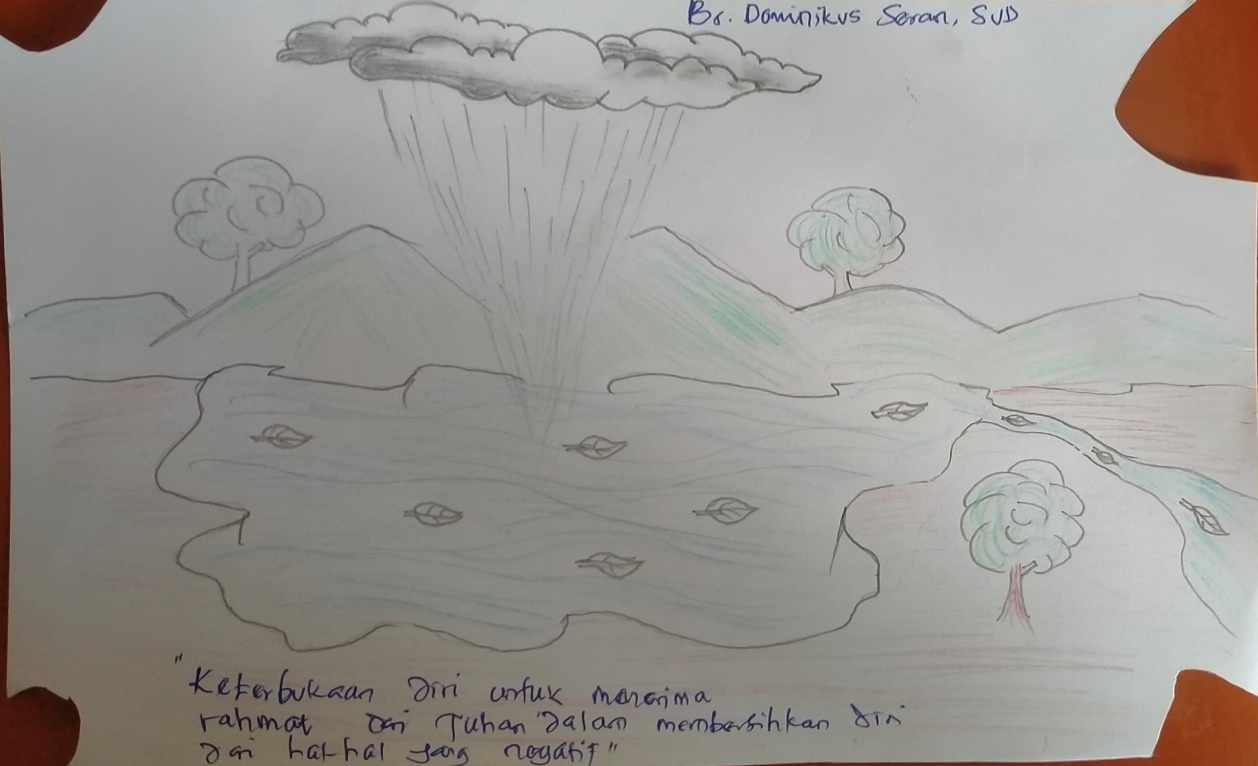 Br. Dominikus Seran, SVD
"Keterbukaan diri untuk menerima
rahmat dari Tuhan dalam membersihkan diri
dari hal-hal yang negatif"